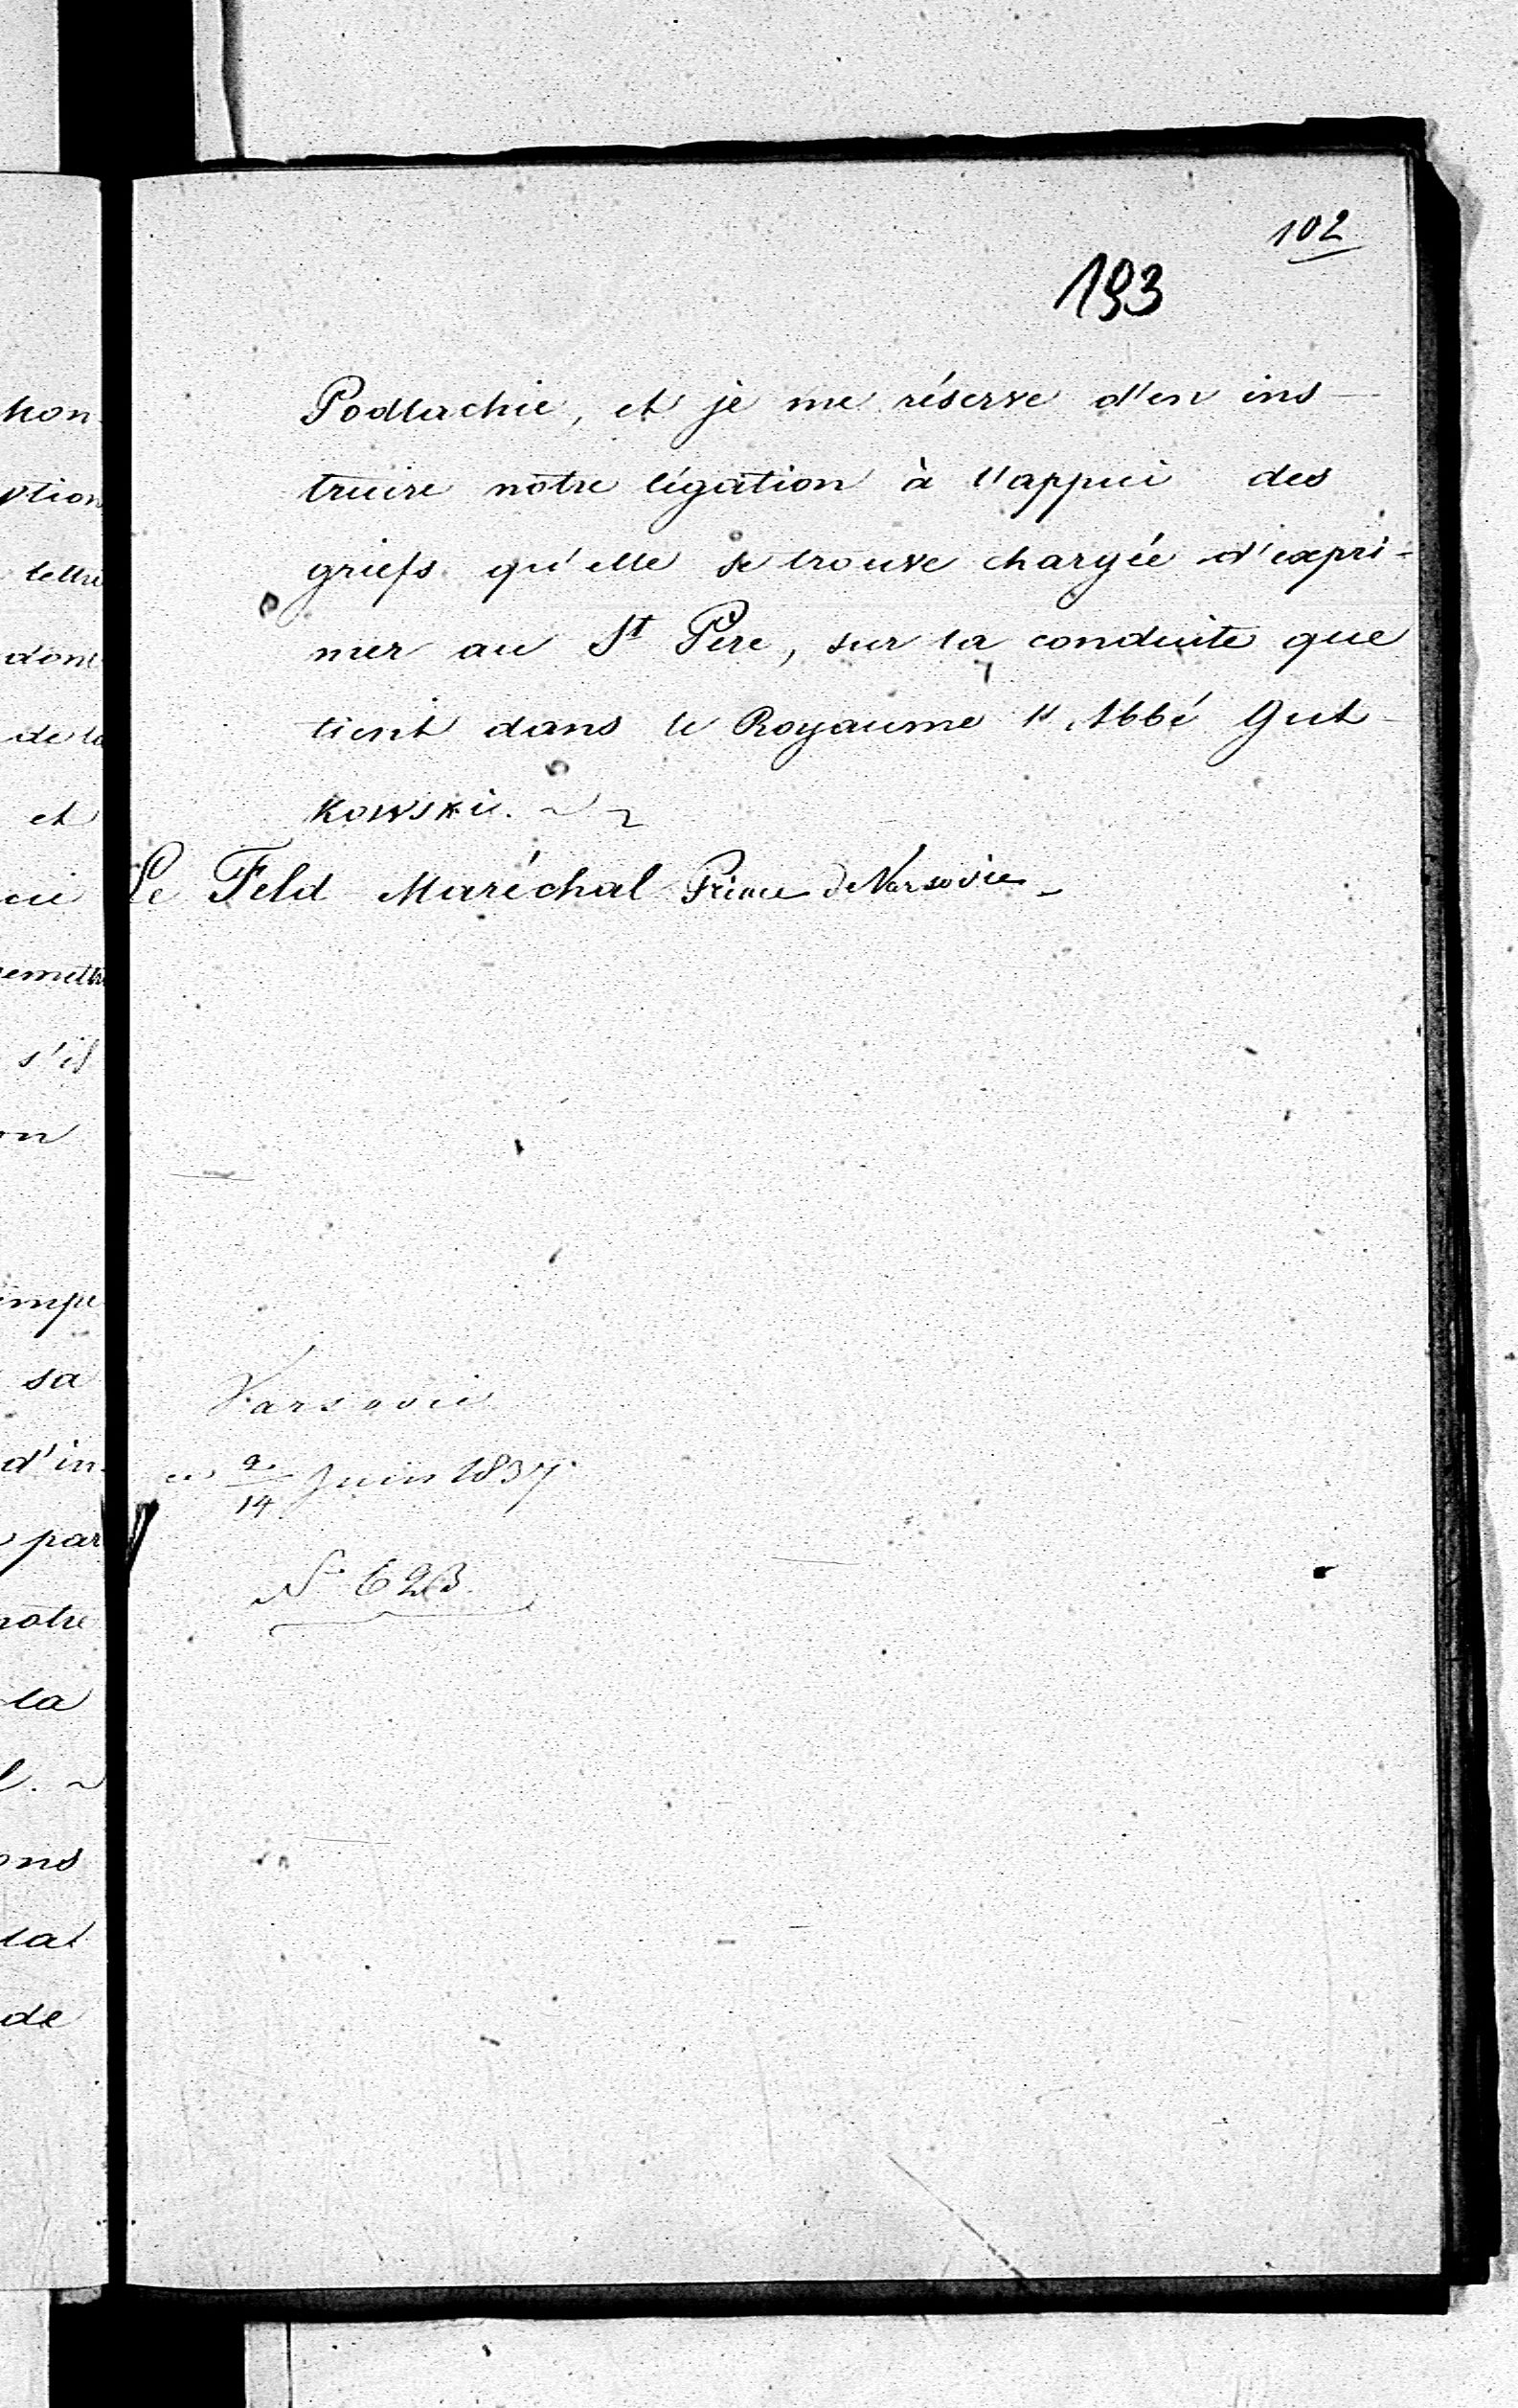 102
193
Podlachie, et je me réserve d'en ins-
truire nôtre légation à l'appui des
griefs qu'elle se trouve chargée d'expri-
mer au St Père, sur la conduite que
tient dans le Royaume l'Abbé Gut-
kowski.
Le Feld Maréchal Prince de Varsovie
Varsovie
ce 2/14 Juin 1837.
No 623.
tion
lettre
dont
de la
et
s'il
sa
d'in-
par
nôtre
la
de